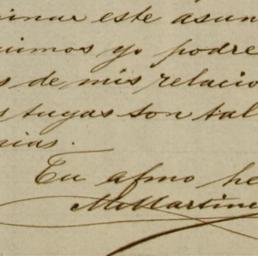 inar este asun
uimos yo podre
s de mis relacio
s tuyas son tal
nias.
Tu afmo he
M Martine